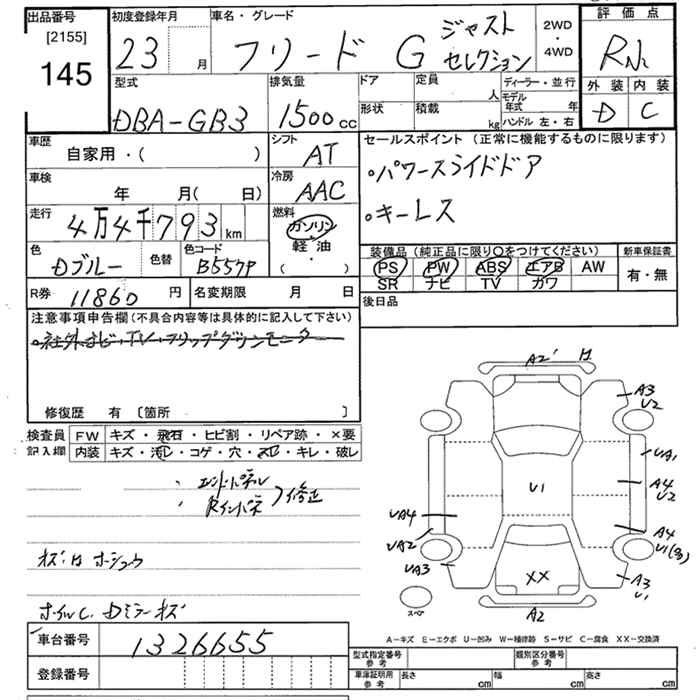 出品番号
[2155]
145
初度登録年月
23 月
車名・グレード
フリード G ジャストセレクション
2WD
・
4WD
評価点
外装 内装
D C
型式
DBA-GB3
排気量
1500 cc
ドア
形状
定員 人
積載 kg
ディーラー・並行
モデル年式 年
ハンドル 左・右
車歴
自家用・( )
シフト
AT
車検
年 月( 日)
冷房
AAC
走行
4万4千793 km
燃料
ガソリン
・
軽油
・
( )
色
Dブルー
色替
色コード
B557P
R券
11860 円
名変期限 月 日
セールスポイント (正常に機能するものに限ります)
。パワースライドドア
。キーレス
装備品 (純正品に限り○をつけてください)
PS PW ABS エアB AW
SR ナビ TV カワ
新車保証書
有・無
後日品
注意事項申告欄(不具合内容等は具体的に記入して下さい)
。社外ナビ・TV・フリップダウンモニター
修復歴 有 [箇所 ]
検査員
記入欄
FW キズ・飛石・ヒビ割・リペア跡・×要
内装 キズ・汚レ・コゲ・穴・スレ・キレ・破レ
エンドパネル
Rインパネ
修正
ホイルC. Dミラーキズ
車台番号
1326655
登録番号
A2'
A3
U2
UA1
A4
U2
U1
UA4
A4
UA2
U1(多)
UA3
A3
U1
XX
スペア
A2
A−キズ E−エクボ U−凹み W−補修跡 S−サビ C−腐食 XX−交換済
型式指定番号
参考
類別区分番号
参考
車庫証明用
参考
長さ cm 幅 cm 高さ cm